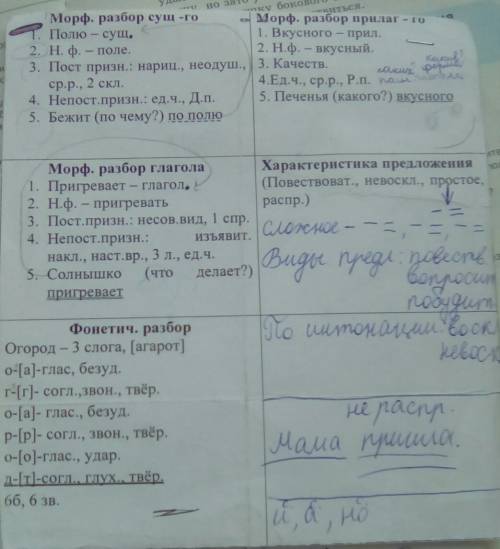 Морф. разбор сущ -го
1. Полю – сущ.
2. Н. ф. – поле.
3. Пост призн.: нариц., неодуш.,
ср.р., 2 скл.
4. Непост.призн.: ед.ч., Д.п.
5. Бежит (по чему?) по полю
Морф. разбор прилаг - го
1. Вкусного – прил.
2. Н.ф. – вкусный.
3. Качеств.
4.Ед.ч., ср.р., Р.п.
5. Печенья (какого?) вкусного
Морф. разбор глагола
1. Пригревает – глагол.
2. Н.ф. – пригревать
3. Пост.призн.: несов.вид, 1 спр.
4. Непост.призн.: изъявит.
накл., наст.вр., 3 л., ед.ч.
5. Солнышко (что делает?)
пригревает
Характеристика предложения
(Повествоват., невоскл., простое,
распр.)
сложное
Виды предл: повеств
вопросит
побудит
По интонации: воскл
невоск
не распр.
Мама пришла.
и, а, но
Фонетич. разбор
Огород – 3 слога, [агарот]
о-[а]-глас, безуд.
г-[г]- согл.,звон., твёр.
о-[а]- глас., безуд.
р-[р]- согл., звон., твёр.
о-[о]-глас., удар.
д-[т]-согл., глух., твёр.
6б, 6 зв.